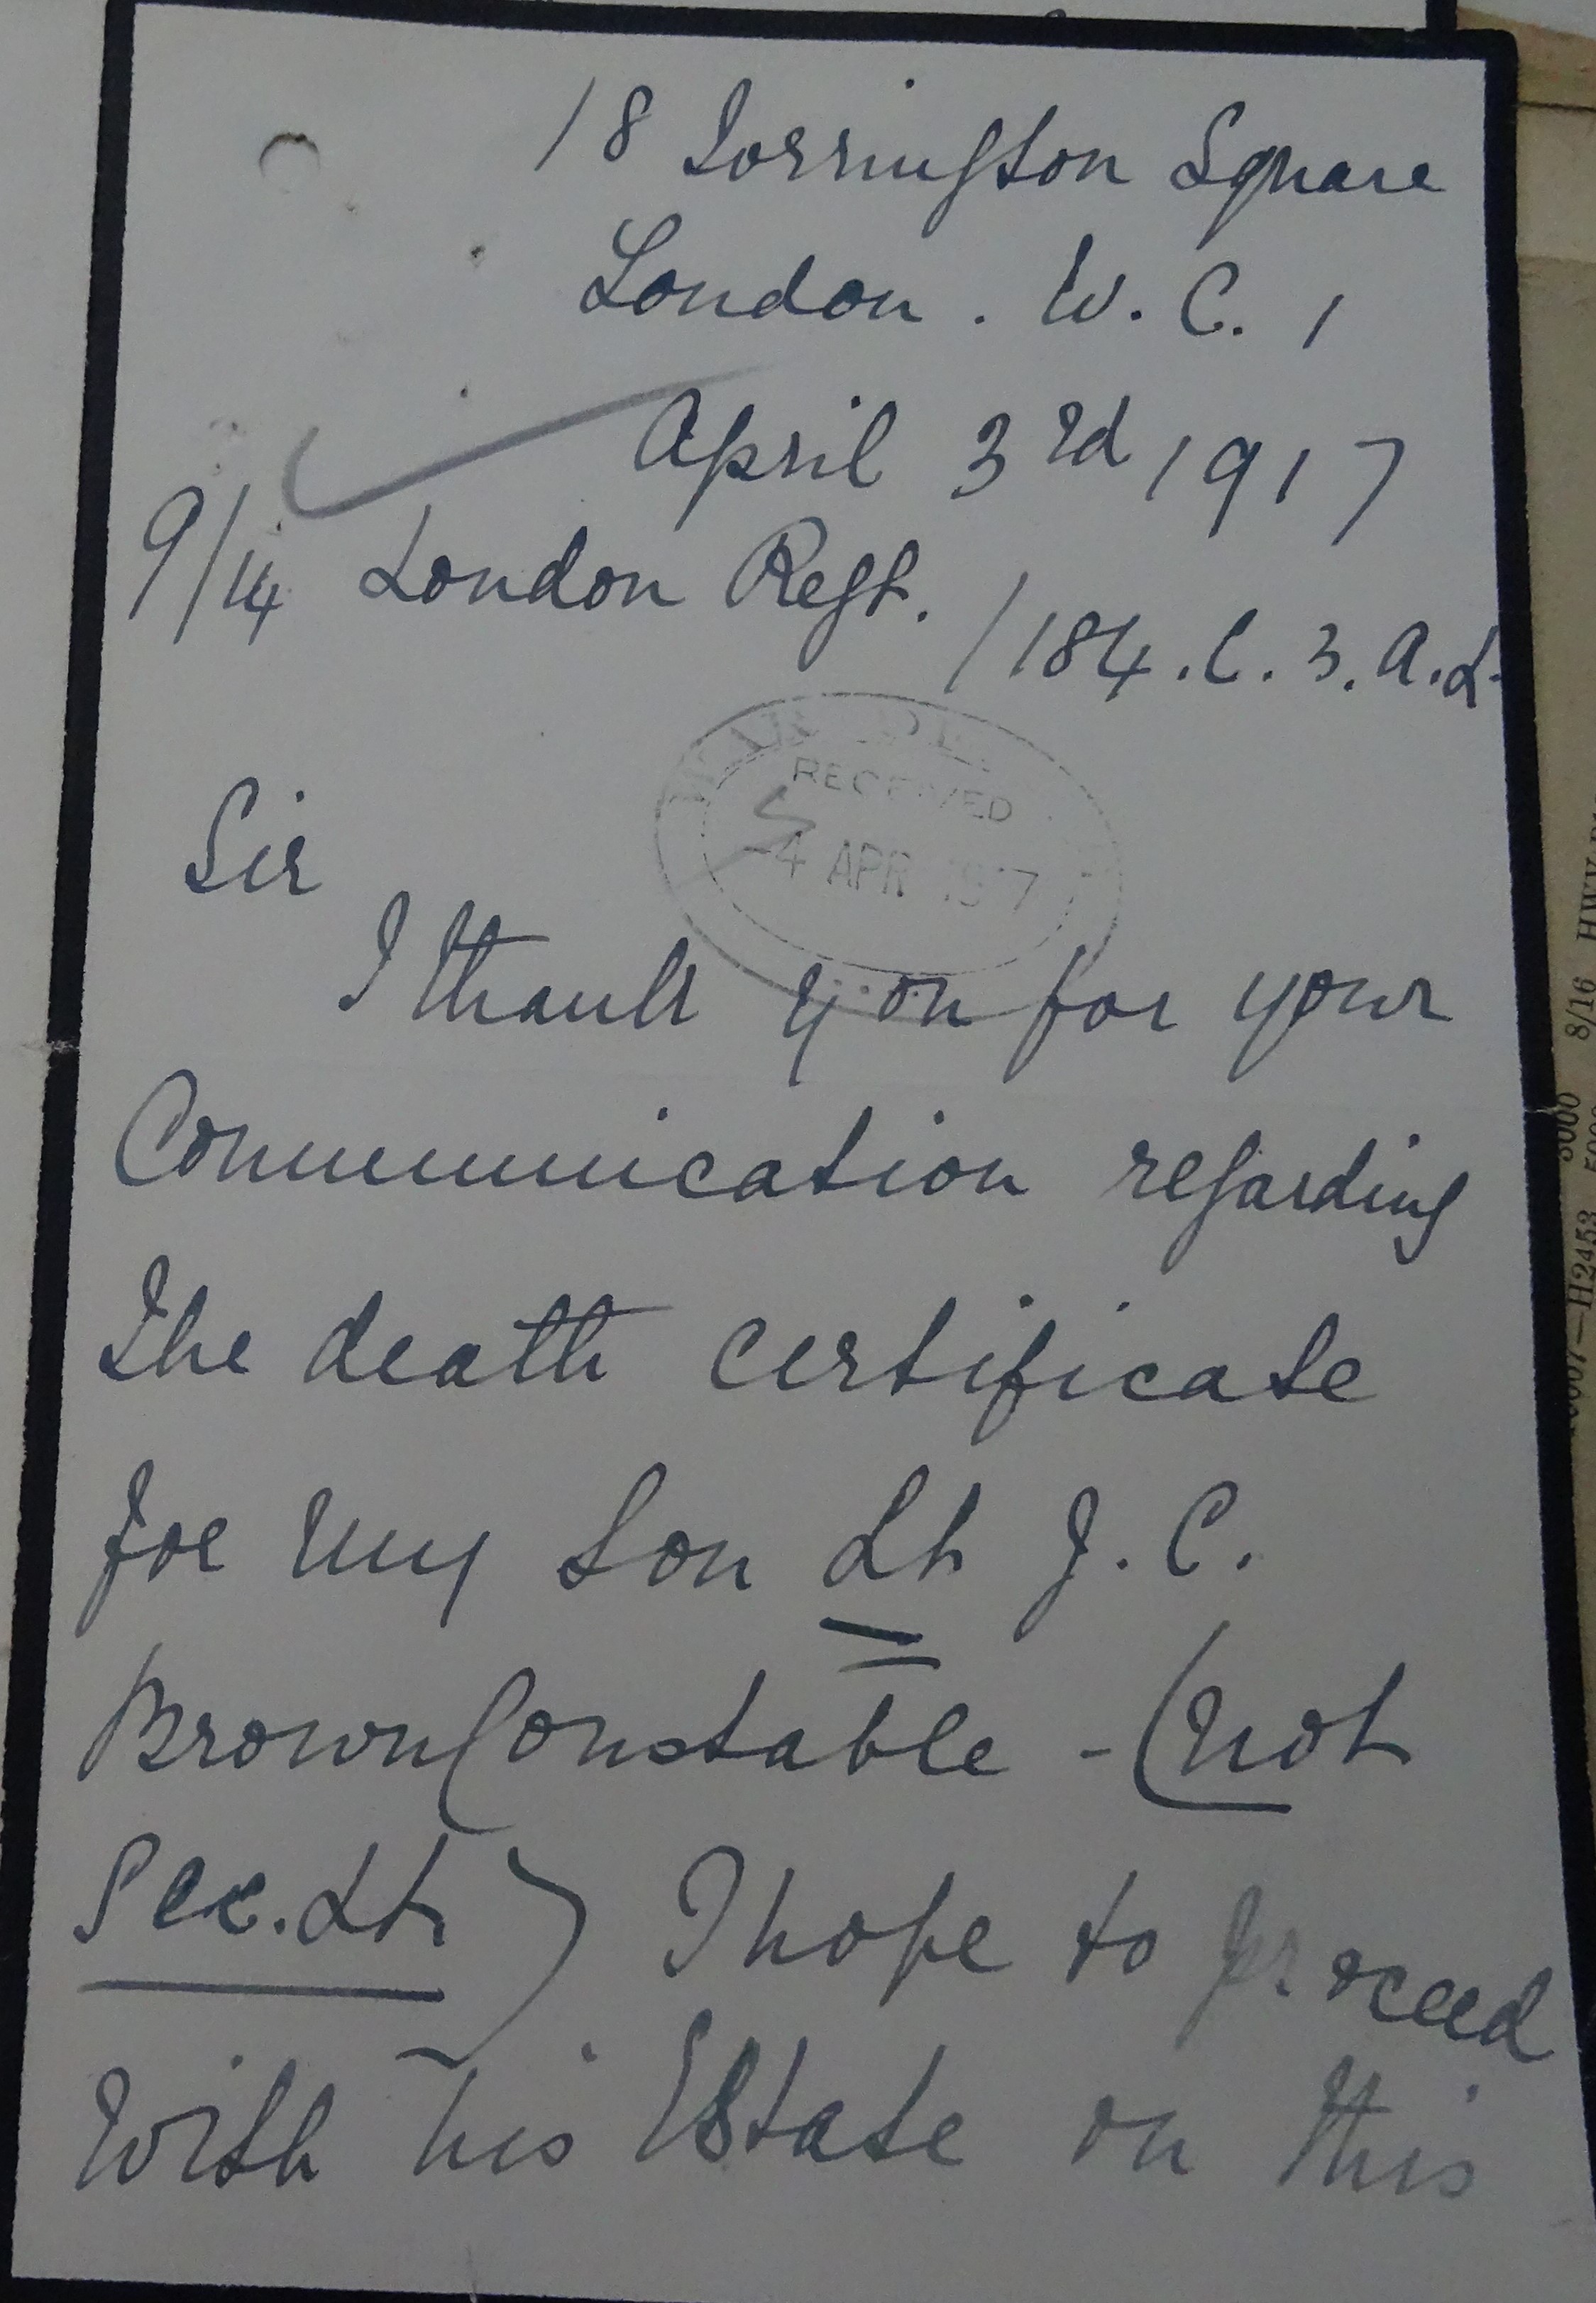 18 Torrington Square
London. W.C. 1
April 3rd 1917
9/14 London Regt.
/184.C.3.A.L.
RECEIVED
4 APR 1917
Sir
I thank you for your
Communication regarding
the death certificate
for my Son Lt J.C.
Brown Constable - (not
Sec. Lt) I hope to proceed
with his Estate on this
8/16
5000
H2453